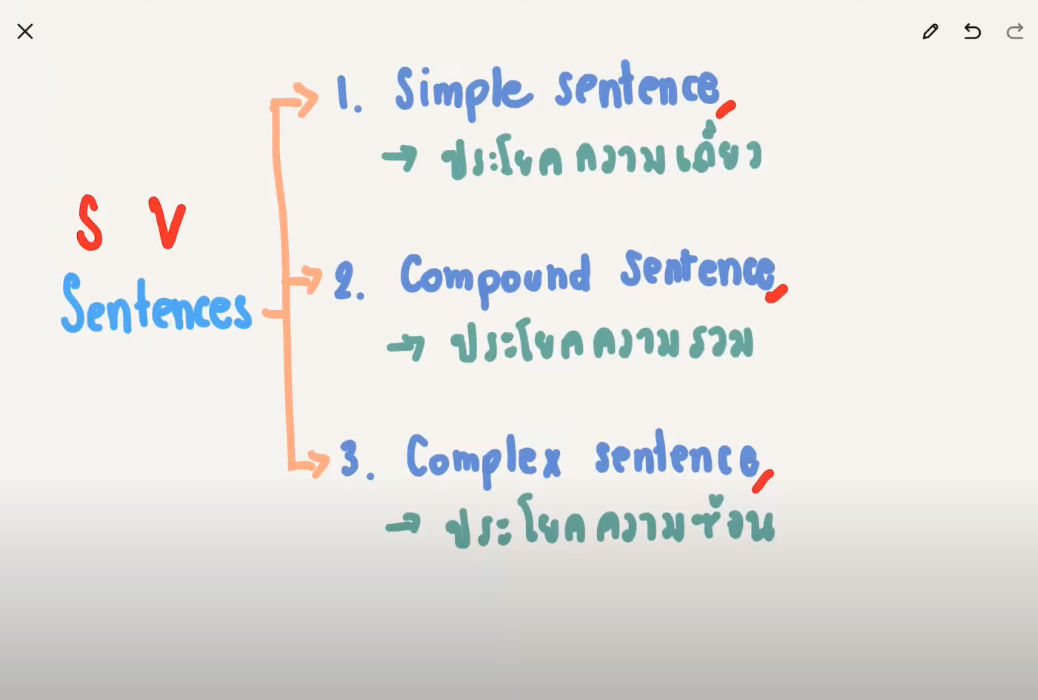 S V
Sentences
1. Simple sentence
→ ประโยคความเดี่ยว
2. Compound sentence
→ ประโยคความรวม
3. Complex sentence
→ ประโยคความซ้อน